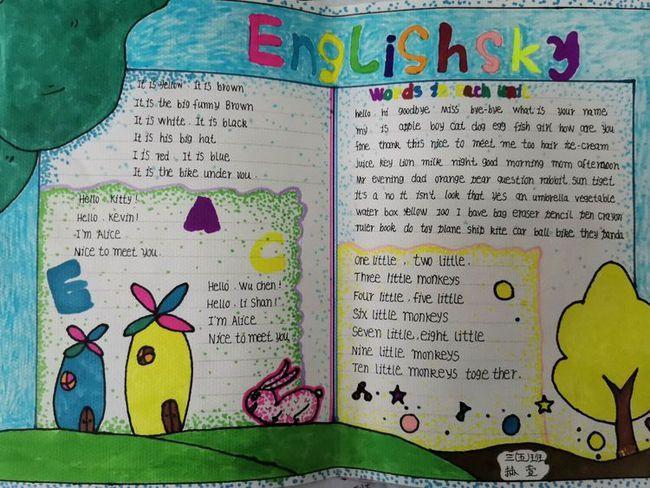 English sky
It is yellow. It is brown
It is the big funny Brown
It is white. It is black
It is his big hat
I is red. It is blue
It is the bike under you.
Hello. Kitty!
Hello. Kevin!
I'm Alice
Nice to meet you.
A
C
E
Hello. Wu chen!
Hello. Li Shan!
I'm Alice
Nice to meet you.
words in each unit
hello. hi goodbye Miss bye-bye what is your name
my is apple boy cat dog egg fish girl how are you
fine thank this nice to meet me too hair ice-cream
juice key lion milk night good morning mom afternoon
Mr evening dad orange pear question rabbit sun tiget
it's a no it isn't look that yes an umbrella vegetable
water box yellow zoo I have bag eraser pencil pen crayon
ruler book do toy plane ship kite car ball bike they panda
one little. two little.
Three little monkeys
Four little. five little
Six little monkeys
Seven little. eight little
Nine little monkeys
Ten little monkeys together.
三(五)班